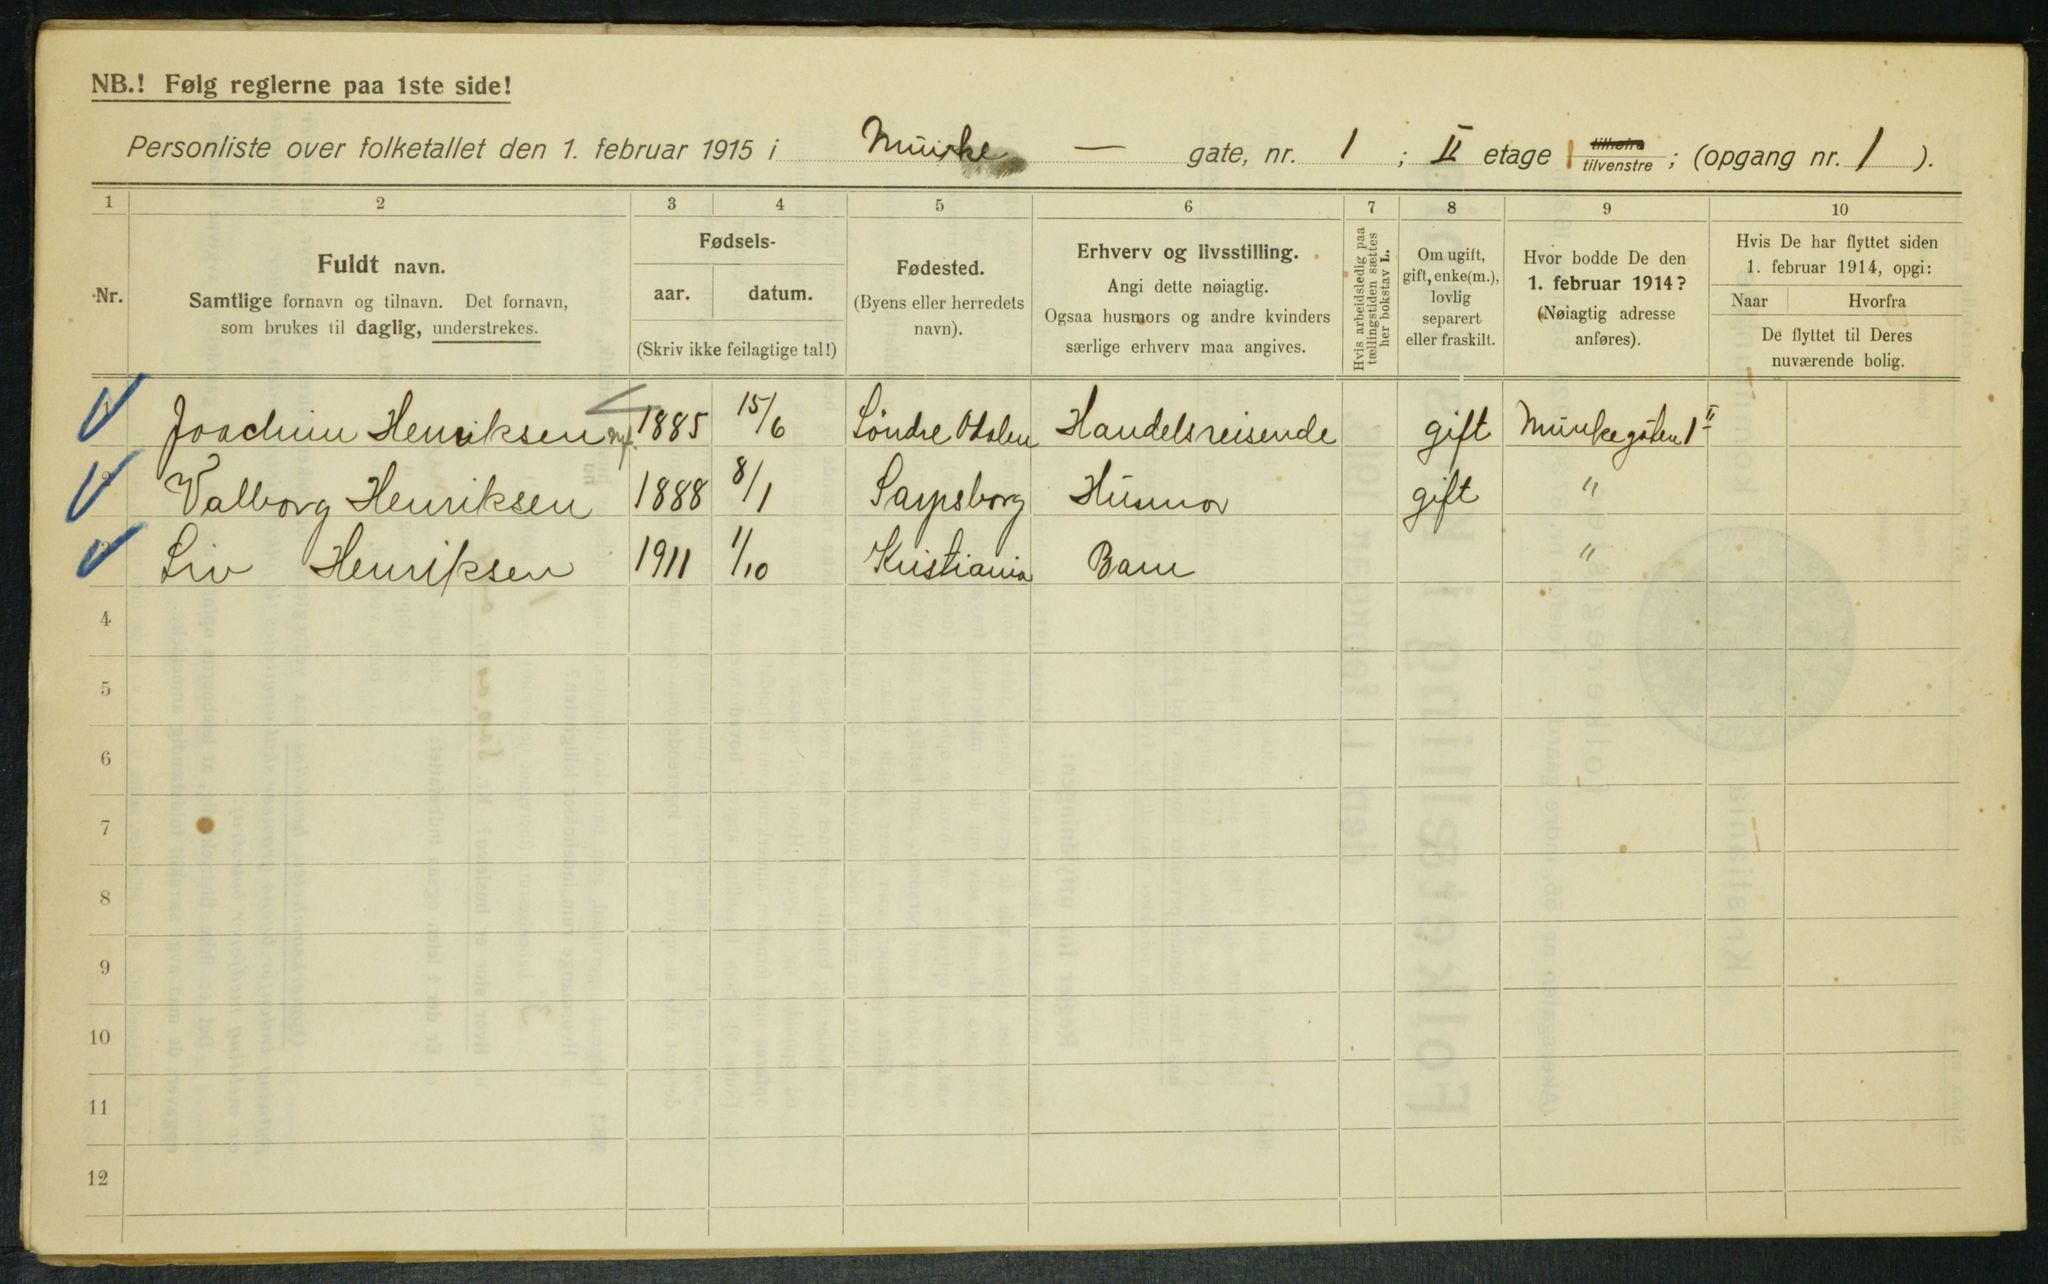 NB.! Følg reglerne paa 1ste side!
Personliste over folketallet den 1. februar 1915 i Munke — gate, nr. 1 ; II etage 1 tilhøire tilvenstre ; (opgang nr. 1 ).
1 2 3 4 5 6 7 8 9 10
Nr.
Fuldt navn.
Samtlige fornavn og tilnavn. Det fornavn,
som brukes til daglig, understrekes.
Fødsels-
aar. datum.
(Skriv ikke feilagtige tal!)
Fødested.
(Byens eller herredets
navn).
Erhverv og livsstilling.
Angi dette nøiagtig.
Ogsaa husmors og andre kvinders
særlige erhverv maa angives.
Hvis arbeidsledig paa
tællingstiden sættes
her bokstav L.
Om ugift,
gift, enke(m.),
lovlig
separert
eller fraskilt.
Hvor bodde De den
1. februar 1914?
(Nøiagtig adresse
anføres).
Hvis De har flyttet siden
1. februar 1914, opgi:
Naar Hvorfra
De flyttet til Deres
nuværende bolig.
1 Joachim Henriksen 1885 15/6 Søndre Odalen Handelsreisende gift Munkegaten 1 II
2 Valborg Henriksen 1888 8/1 Sarpsborg Husmor gift "
3 Liv Henriksen 1911 1/10 Kristiania Barn "
4
5
6
7
8
9
10
11
12